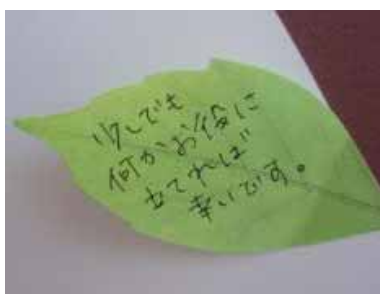 少しでも
何かお役に
立てれば
幸いです。